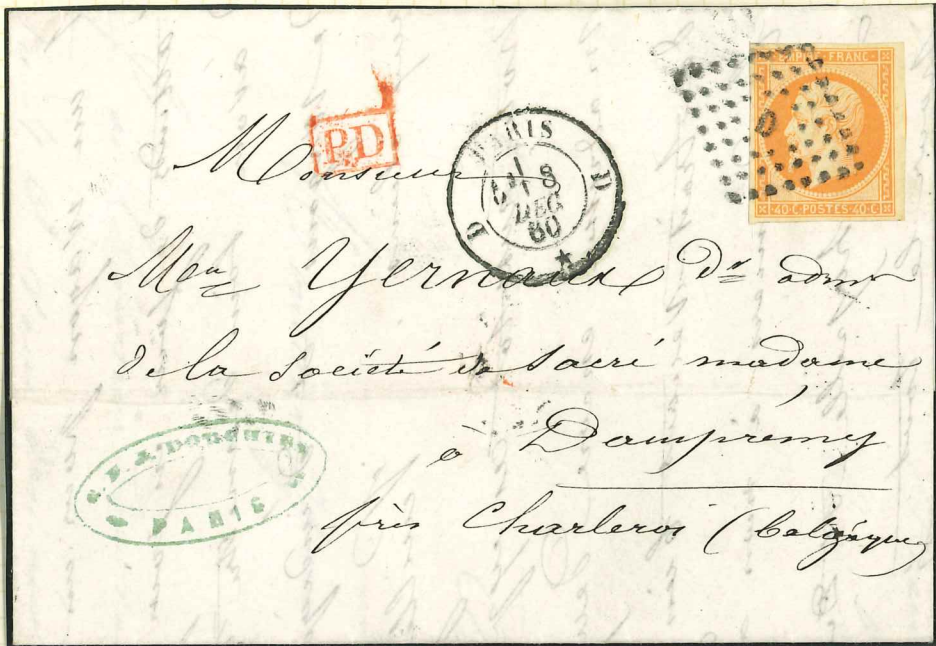 EMPIRE FRANC
D
40·C·POSTES·40·C
PD
PARIS
8
DEC
60
D D
Monsieur
Yernaux Dr admr
de la Société de Sacré madame
à Dampremy
près Charleroi (belgique)
PARIS